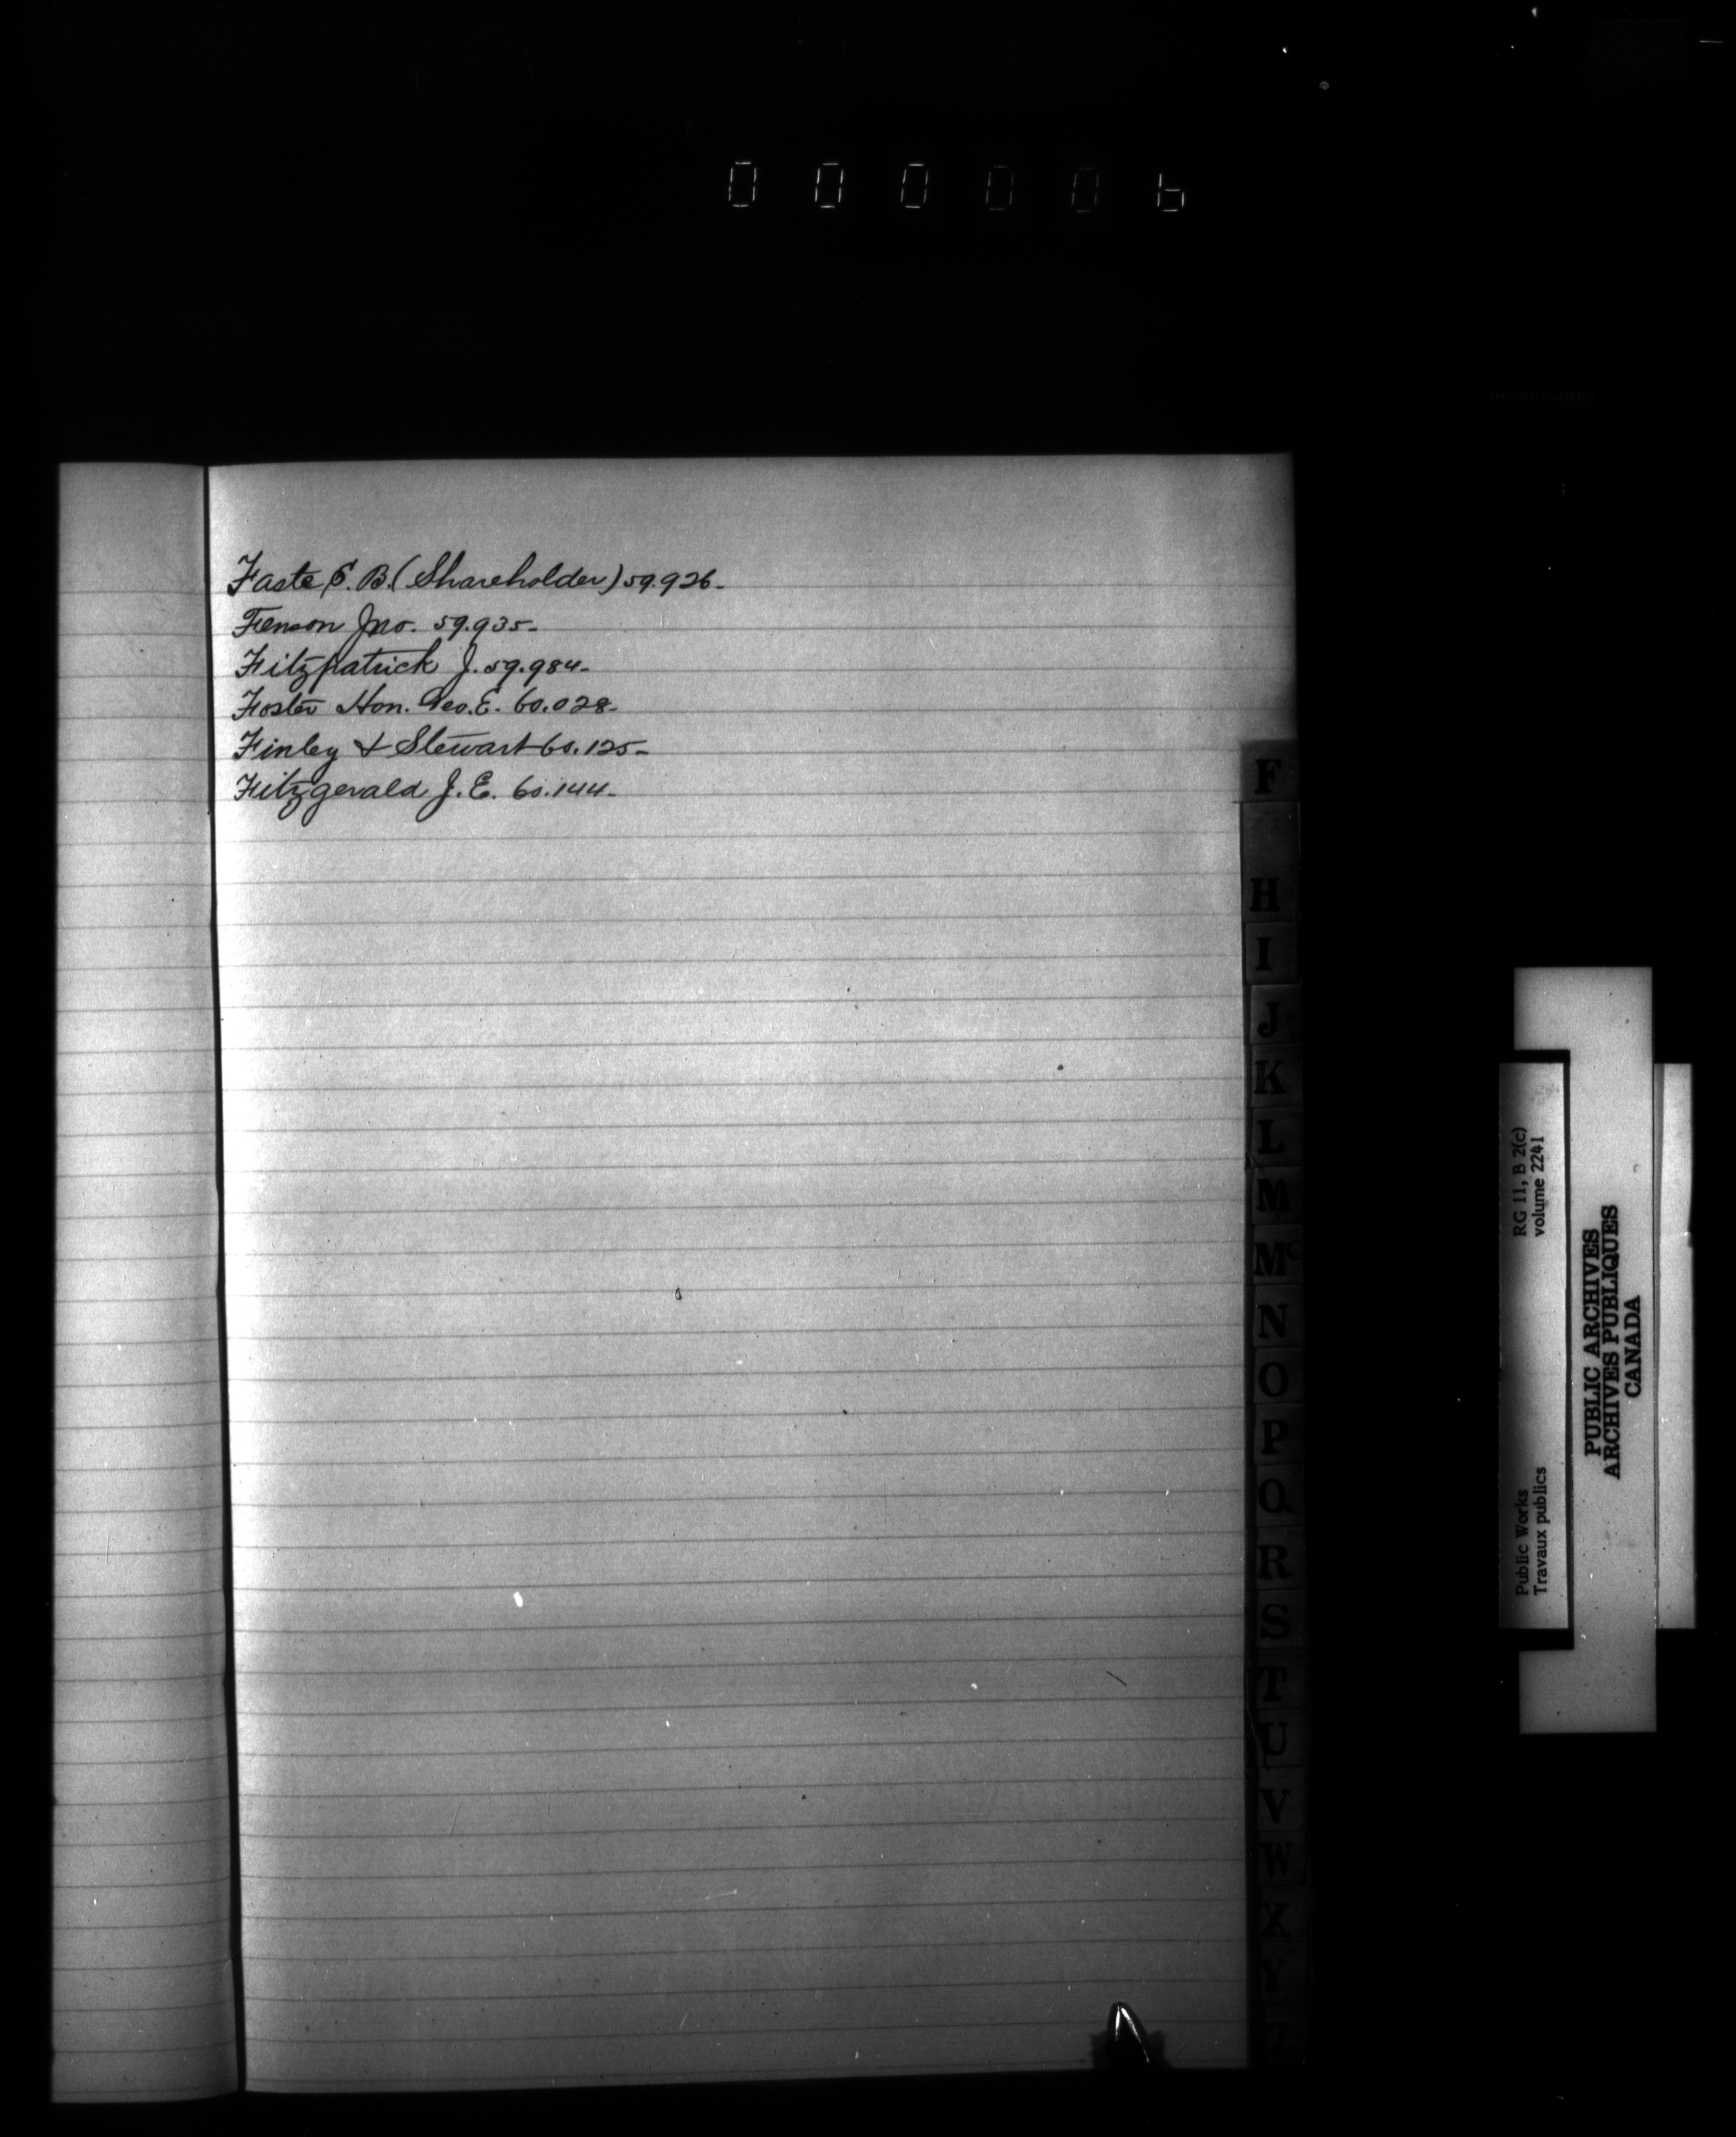 000006
Faste E. B. (Shareholder) 59.926-
Fenson Jno. 59.935-
Fitzpatrick J. 59.984-
Foster Hon. Geo. E. 60.028-
Finley & Stewart 60.125-
Fitzgerald J. E. 60.144-
F
H
I
J
K
L
M
Mc
N
O
P
Q
R
S
T
U
V
W
X
Y
Z
Public Works RG 11, B 2(c)
Travaux publics volume 2241
PUBLIC ARCHIVES
ARCHIVES PUBLIQUES
CANADA